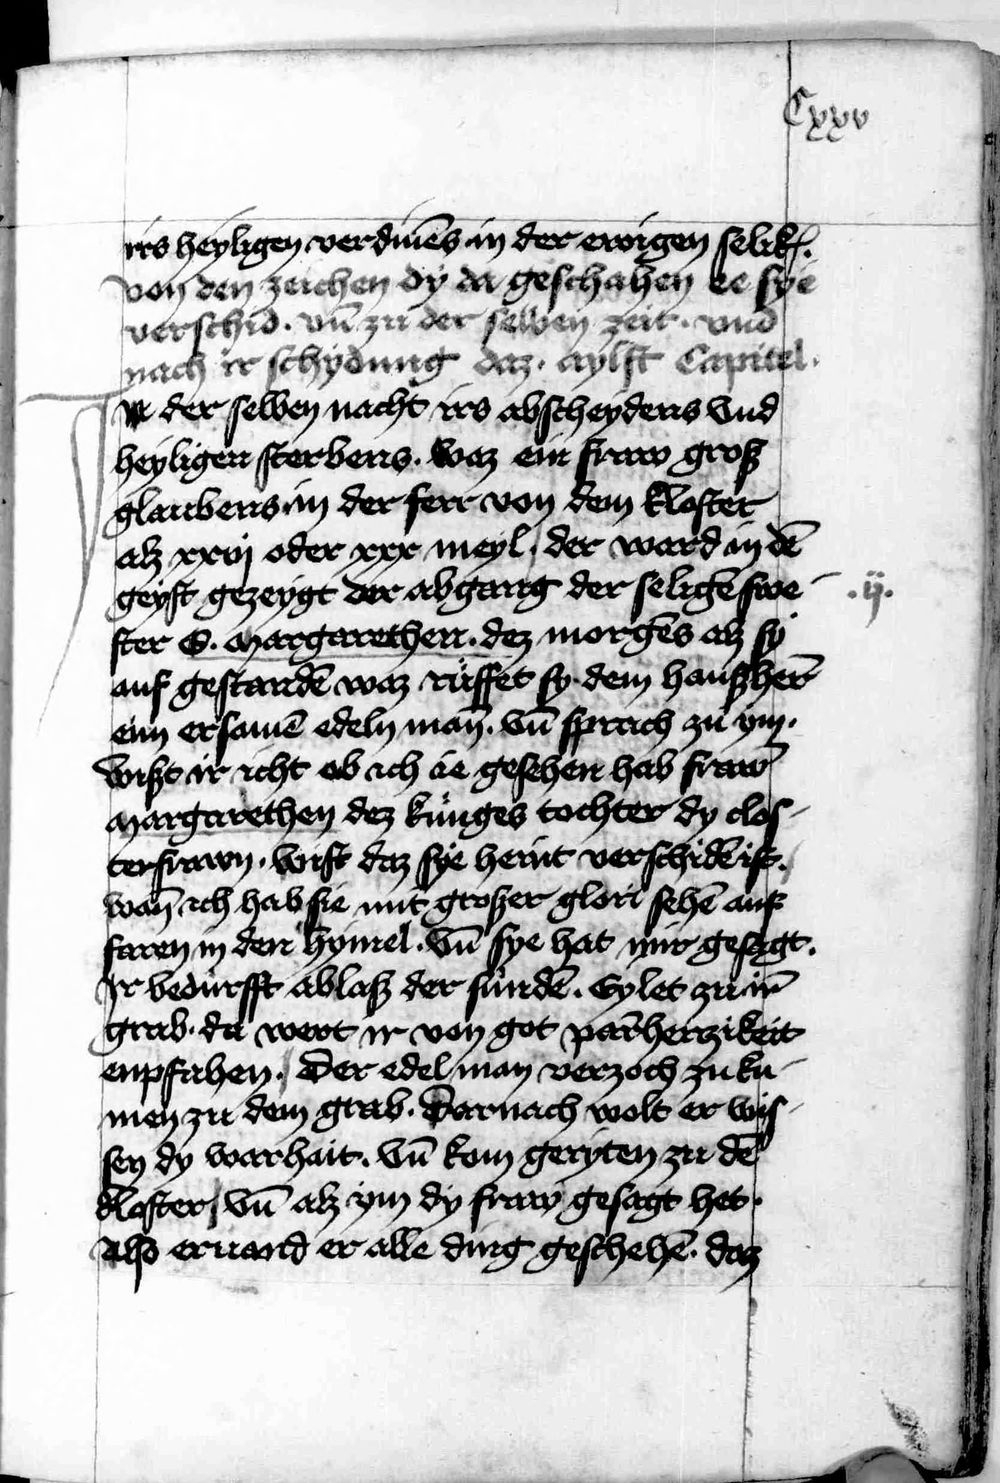 Cxxv
irs heyligen verdinēs in der ewigen selik.
von den zeichen dy da geschahen ee sye
verschid. vn̄ zu der selben zeit. vnd
nach ir schydung daz. aylft Capitel.
In der selben nacht irs abscheydens vnd
heyligen sterbens. waz ein fraw groß
glaubens in der ferr von dem kloster
alz xxvij oder xxx meyl. der ward in dē
geyst gezeygt der abgang der seligē swe-
.ij.
ster S. Margarethen. dez morgēs alz sy
auf gestandē waz rüffet sy dem haußherē
eim ersamē edeln man̄. vn̄ sprach zu ym.
wißt ir icht ob ich ie gesehen hab fraw
Margarethen dez künges tochter dy clos-
terfrawn. wist daz sye heint verschidē ist.
wan̄ ich hab sie mit großer glori sehē auf
faren in den hymel. vn̄ sye hat mir gesagt.
Ir bedürfft ablaß der sündē. Eylet zu irē
grab. da wert ir von got parm̄herzikeit
enpfahen. Der edel man verzoch zu ku-
men zu dem grab. Darnach wolt er wis-
sen dy warhait. vn̄ kom geryten zu dē
kloster, vn̄ alz ym dy fraw gesagt het.
Also ervand er alle ding geschehē. daz